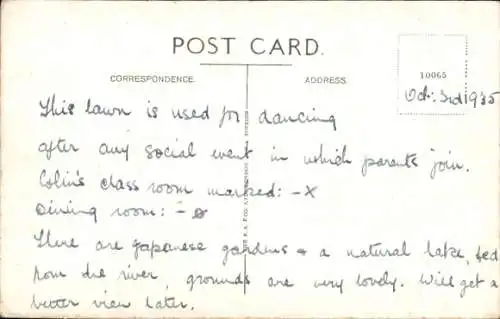 POST CARD.
CORRESPONDENCE.
ADDRESS.
10065
Oct: 3rd 1935
This lawn is used for dancing
after any social event in which parents join.
Colin's class room marked: - X
Dining room: - o
There are Japanese gardens & a natural lake, fed
from the river, grounds are very lovely. Will get a
better view later.